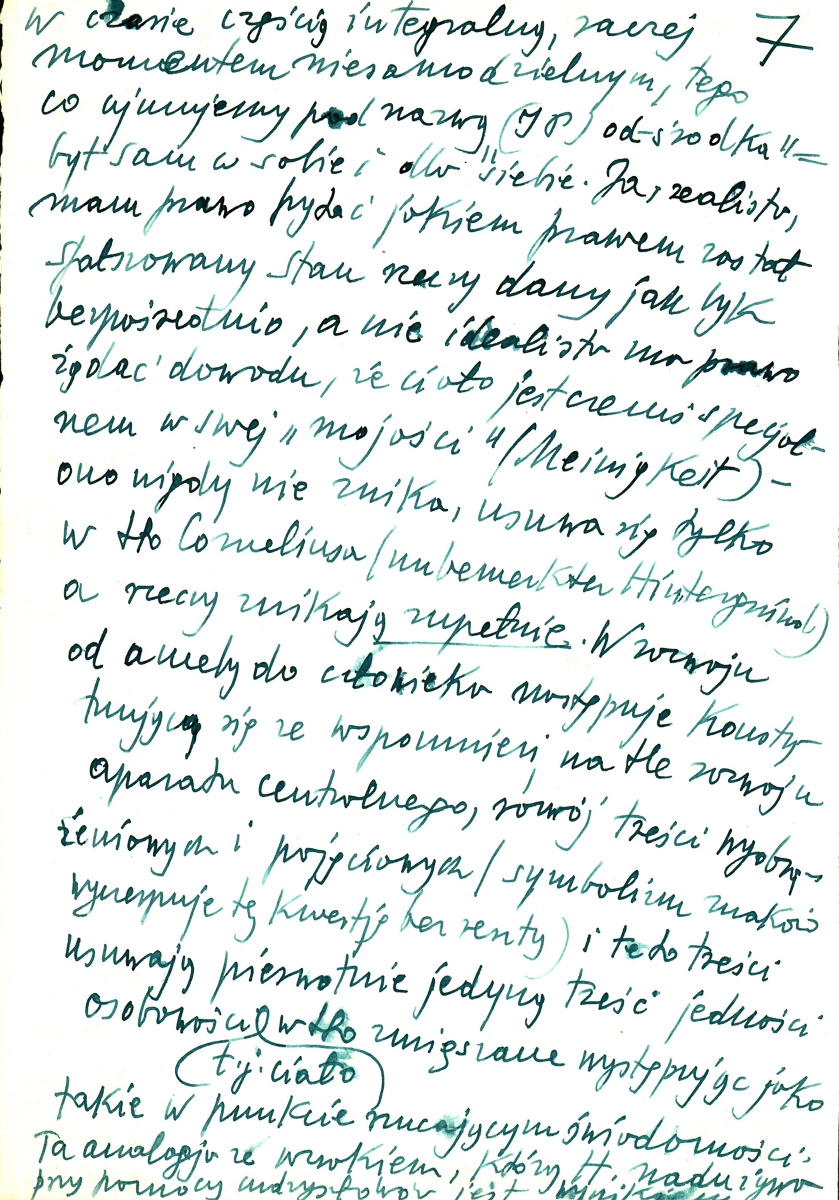 7
w czasie częścią integralną, raczej
momentem niesamodzielnym, tego
co ujmujemy pod nazwą (IP) od-środka" =
byt sam w sobie i dla "siebie. Ja, realista,
mam prawo pytać jakiem prawem został
sfałszowany stan rzeczy dany jak byk
bezpośrednio, a nie idealista ma prawo
żądać dowodu, że ciało jest czemuś specjal-
nem w swej "mojości" (Meinigkeit) -
ono nigdy nie znika, usuwa się tylko
w tło Corneliusa (unbemerkter Hintergrund)
a rzeczy znikają zupełnie. W rozwoju
od ameby do człowieka następuje konsty-
tuujący się ze wspomnień, na tle rozwoju
aparatu centralnego, rozwój treści wyobra-
żeniowych i pojęciowych (symbolizm znaków
wyczerpuje tę kwestję bez reszty) i te to treści
usuwają pierwotnie jedyną treść jedności
osobowości w tło zmięszane występując jako
t.j. ciało
takie w punkcie rzucającym świadomości.
Ta analogja ze wzrokiem, który H. nadużywa
przy pomocy cudzysłowów jest